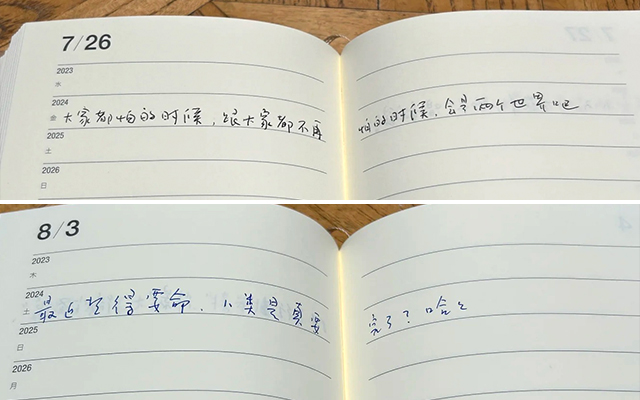 7/26
2023
水
2024
金 大家都怕的时候,跟大家都不再怕的时候,会是两个世界吧
2025
土
2026
日
7/27
8/3
2023
木
2024
土 最近热得要命,人类是真要完了?哈々
2025
日
2026
月
4